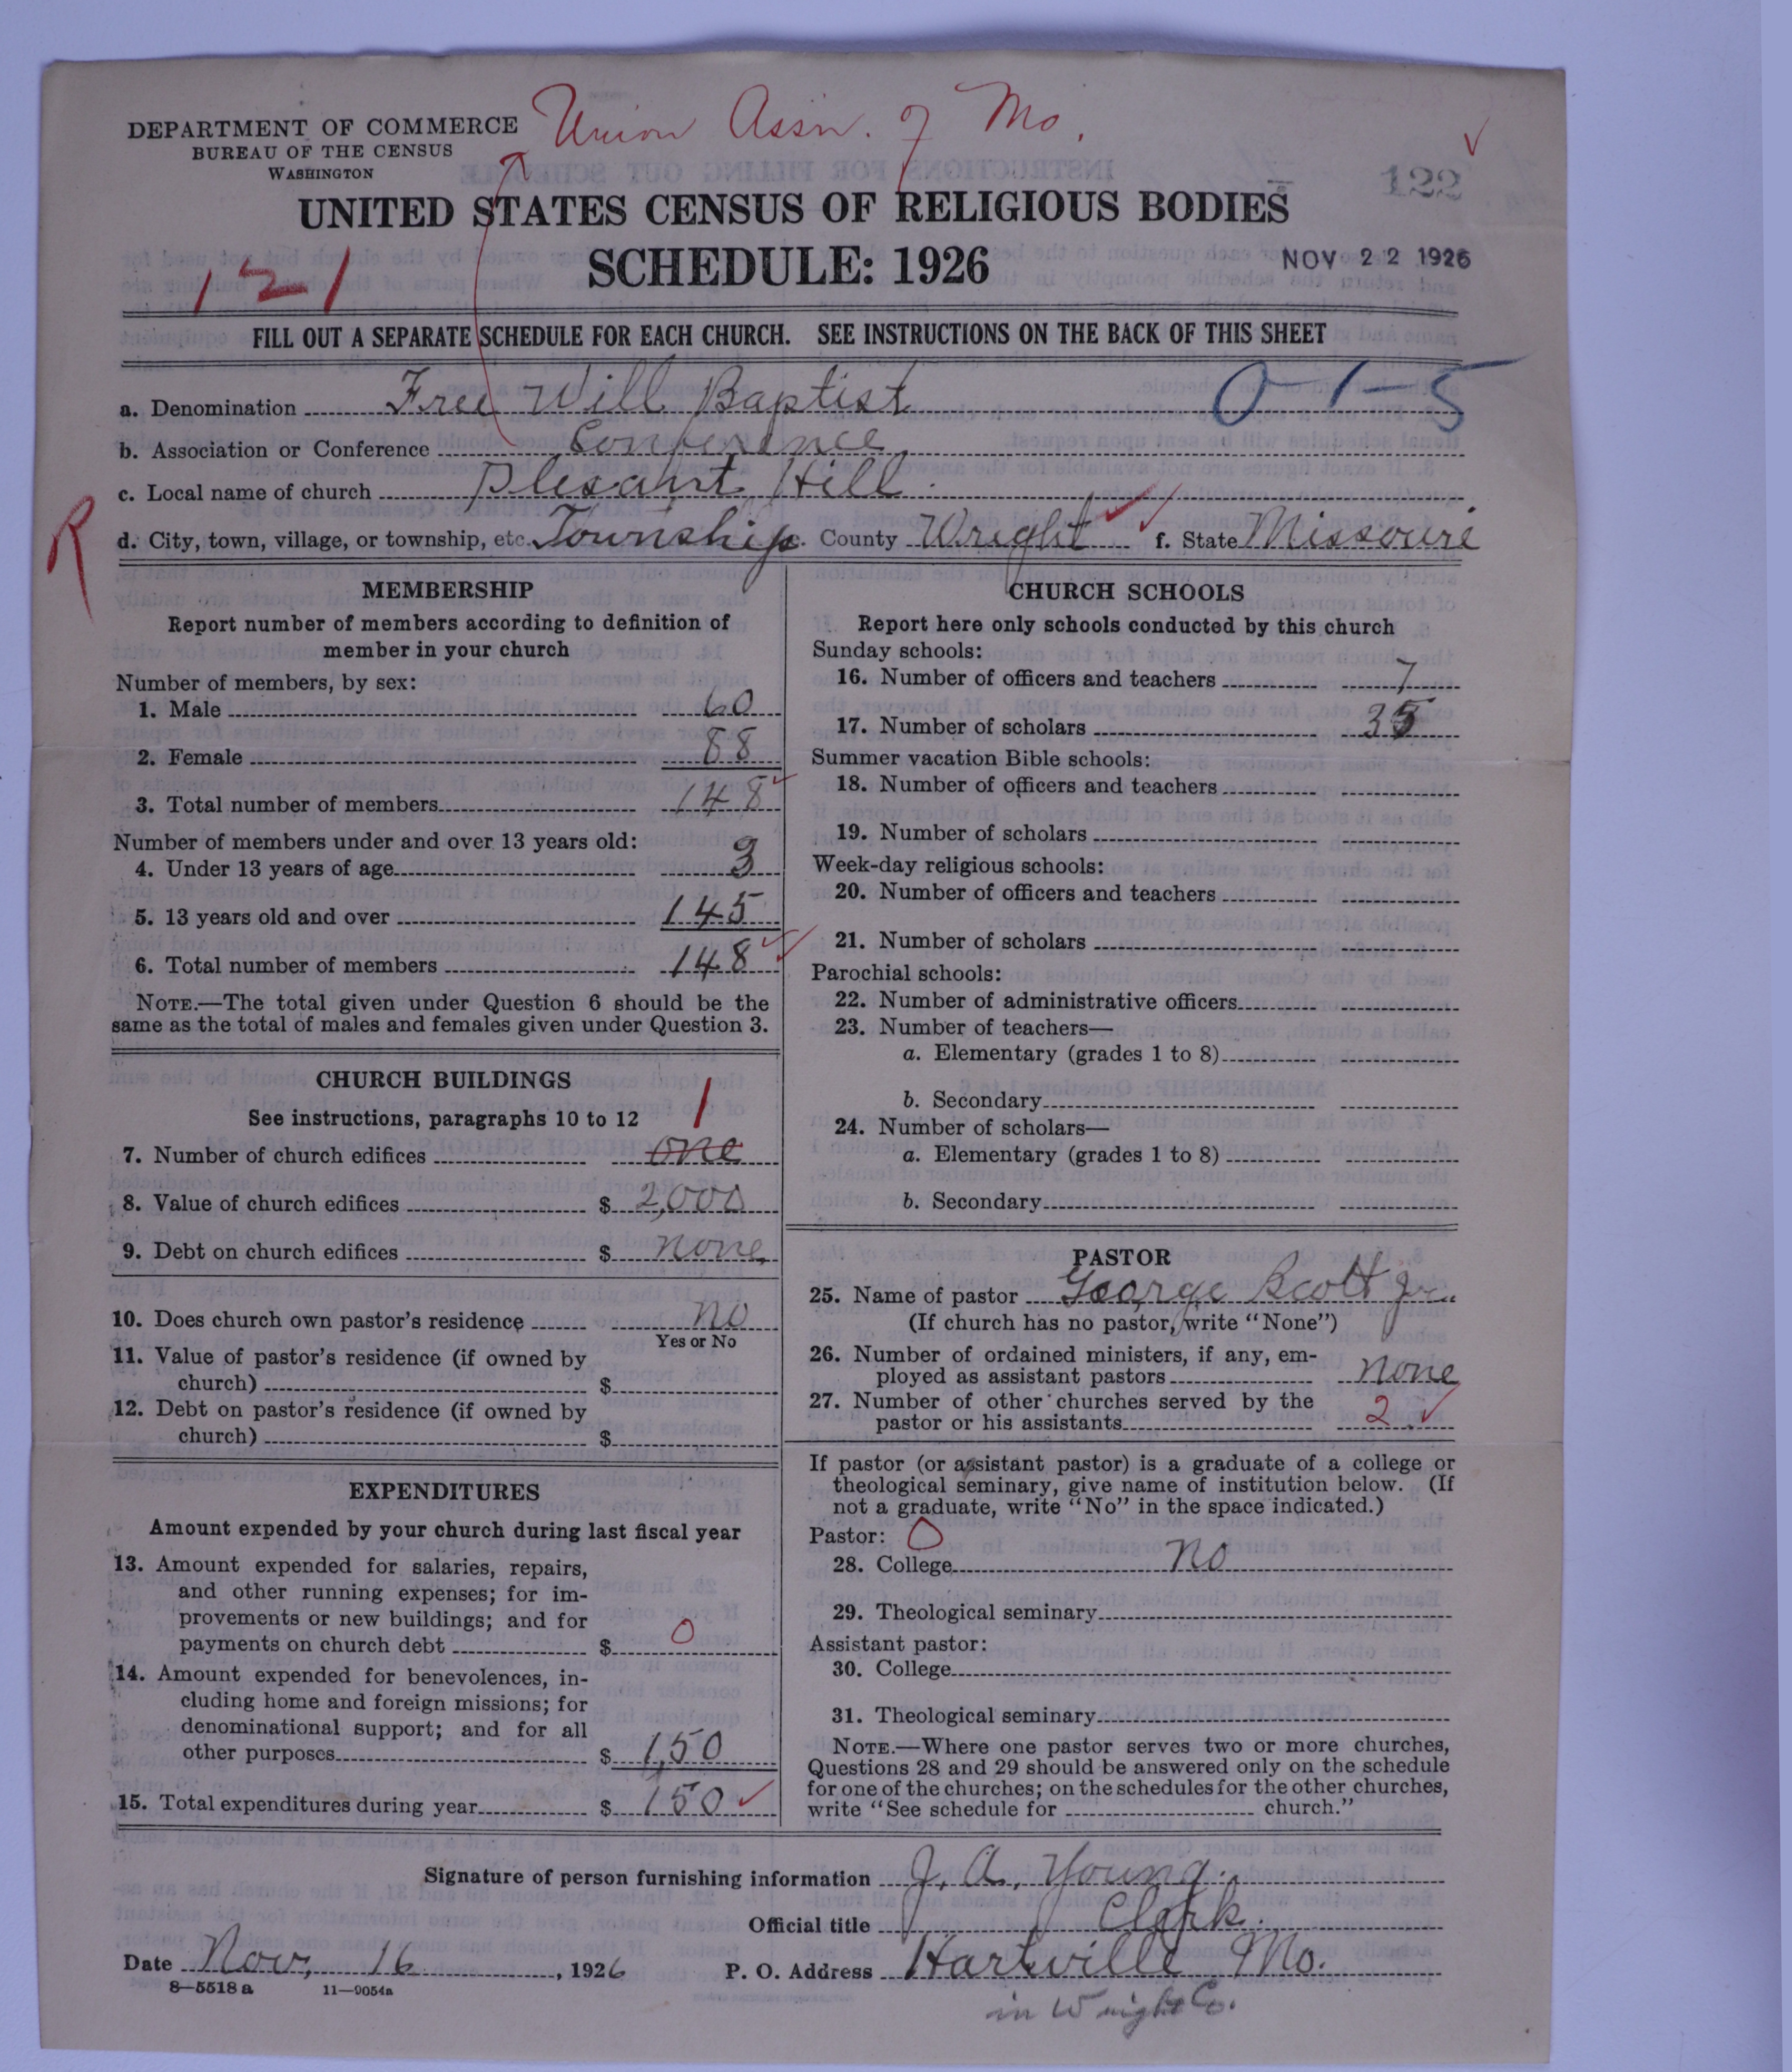 Union Assn. of Mo.
DEPARTMENT OF COMMERCE
BUREAU OF THE CENSUS
WASHINGTON
122
UNITED STATES CENSUS OF RELIGIOUS BODIES
SCHEDULE: 1926
NOV 22 1926
121
FILL OUT A SEPARATE SCHEDULE FOR EACH CHURCH. SEE INSTRUCTIONS ON THE BACK OF THIS SHEET
a. Denomination Free Will Baptist 0-1-5
b. Association or Conference Conference
c. Local name of church Plesant Hill
R
d. City, town, village, or township, etc. Township e. County Wright f. State Missouri
MEMBERSHIP
Report number of members according to definition of
member in your church
Number of members, by sex:
1. Male 60
2. Female 88
3. Total number of members 148
Number of members under and over 13 years old:
4. Under 13 years of age 3
5. 13 years old and over 145
6. Total number of members 148
NOTE.—The total given under Question 6 should be the
same as the total of males and females given under Question 3.
CHURCH BUILDINGS
See instructions, paragraphs 10 to 12
1
7. Number of church edifices one
8. Value of church edifices $ 2,000
9. Debt on church edifices $ none
10. Does church own pastor's residence no
Yes or No
11. Value of pastor's residence (if owned by
church) $
12. Debt on pastor's residence (if owned by
church) $
EXPENDITURES
Amount expended by your church during last fiscal year
13. Amount expended for salaries, repairs,
and other running expenses; for im-
provements or new buildings; and for
payments on church debt $ 0
14. Amount expended for benevolences, in-
cluding home and foreign missions; for
denominational support; and for all
other purposes $ 1,50
15. Total expenditures during year $ 150
CHURCH SCHOOLS
Report here only schools conducted by this church
Sunday schools:
16. Number of officers and teachers 7
17. Number of scholars 35
Summer vacation Bible schools:
18. Number of officers and teachers
19. Number of scholars
Week-day religious schools:
20. Number of officers and teachers
21. Number of scholars
Parochial schools:
22. Number of administrative officers
23. Number of teachers—
a. Elementary (grades 1 to 8)
b. Secondary
24. Number of scholars—
a. Elementary (grades 1 to 8)
b. Secondary
PASTOR
25. Name of pastor George Scott Jr.
(If church has no pastor, write "None")
26. Number of ordained ministers, if any, em-
ployed as assistant pastors none
27. Number of other churches served by the
pastor or his assistants 2
If pastor (or assistant pastor) is a graduate of a college or
theological seminary, give name of institution below. (If
not a graduate, write "No" in the space indicated.)
Pastor: 0
28. College no
29. Theological seminary
Assistant pastor:
30. College
31. Theological seminary
NOTE.—Where one pastor serves two or more churches,
Questions 28 and 29 should be answered only on the schedule
for one of the churches; on the schedules for the other churches,
write "See schedule for church."
Signature of person furnishing information J. A. Young.
Official title Clerk.
Date Nov, 16, 1926 P. O. Address Hartville Mo.
8—5518 a 11—9054a
in Wright Co.